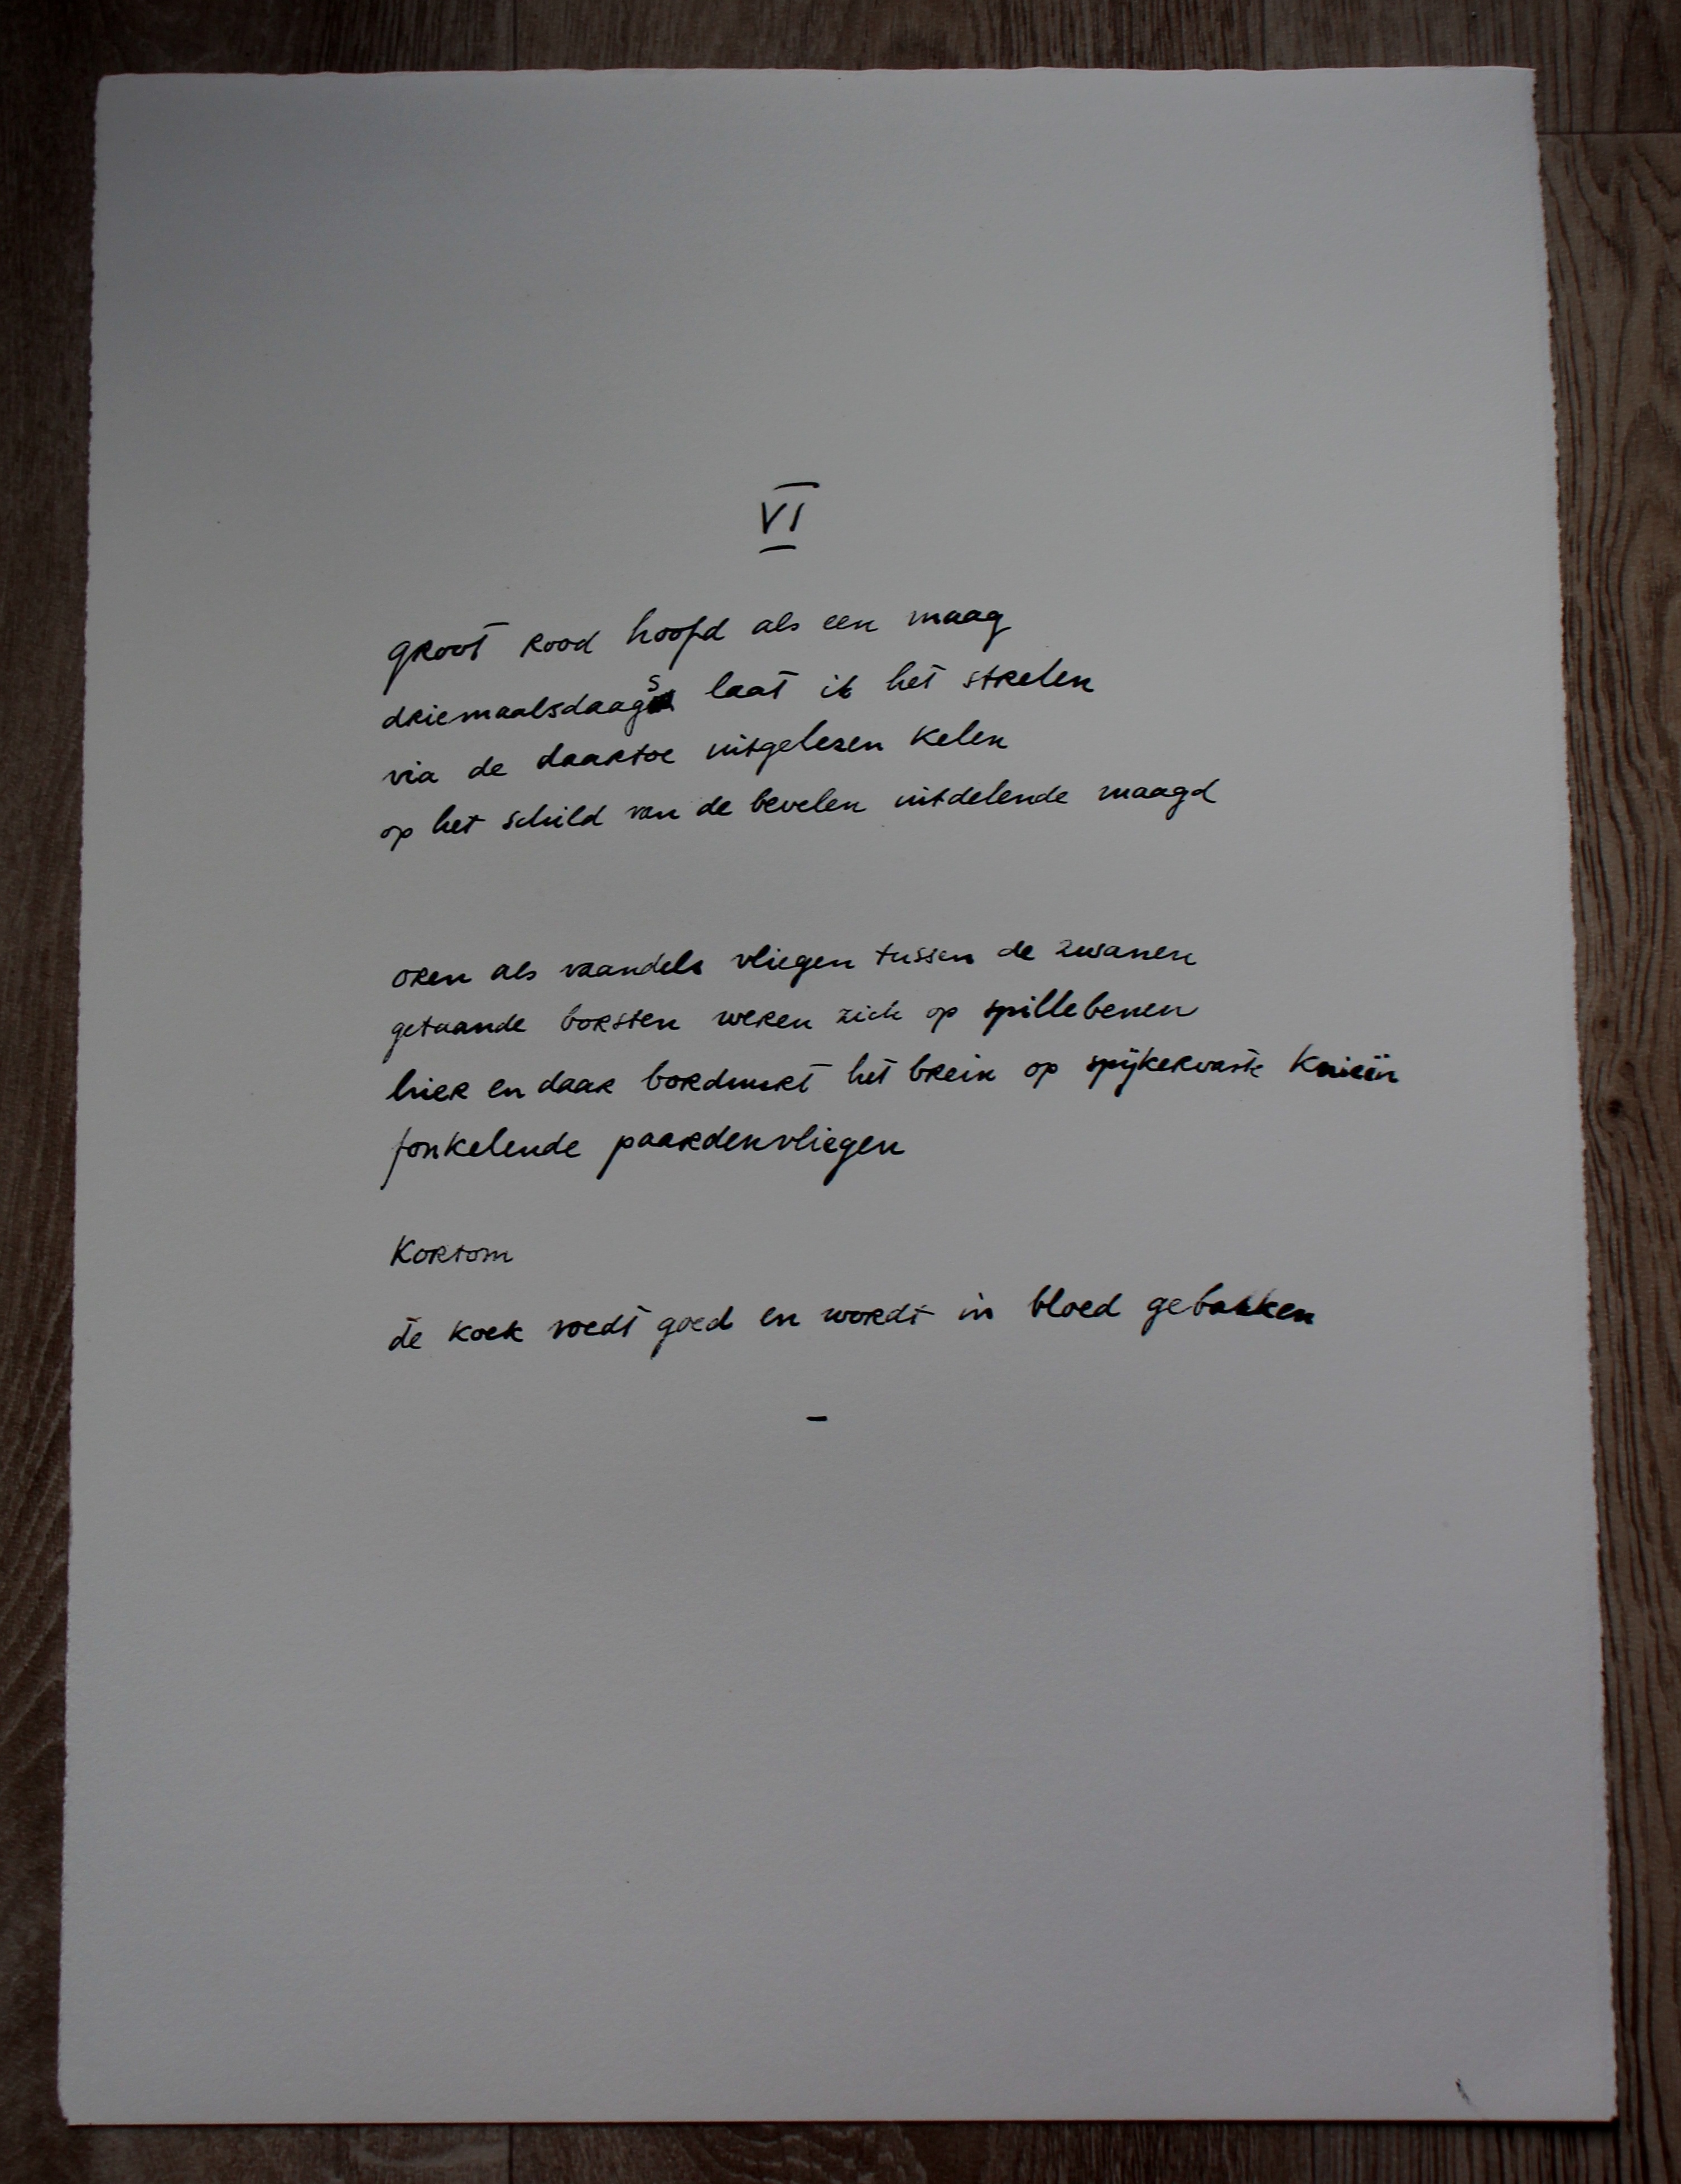 VI
groot rood hoofd als een maag
driemaalsdaags laat ik het strelen
via de daartoe uitgelezen kelen
op het schild van de bevelen uitdelende maagd
oren als vaandels vliegen tussen de zwanen
getaande borsten weren zich op spillebenen
hier en daar borduurt het brein op spijkervaste knieën
fonkelende paardenvliegen
Kortom
de koek voedt goed en wordt in bloed gebakken